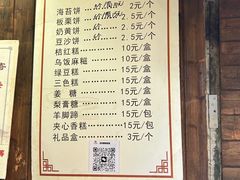 海苔饼 2元/个
板栗饼 2.5元/个
奶黄饼 2.5元/个
豆沙饼 2.5元/个
桔红糕 10元/盒
乌饭麻糍 10元/盒
绿豆糕 15元/盒
三色糕 15元/盒
姜糖 15元/盒
梨膏糖 15元/盒
羊脚蹄 15元/包
夹心香糕 15元/包
礼品盒 3元/个